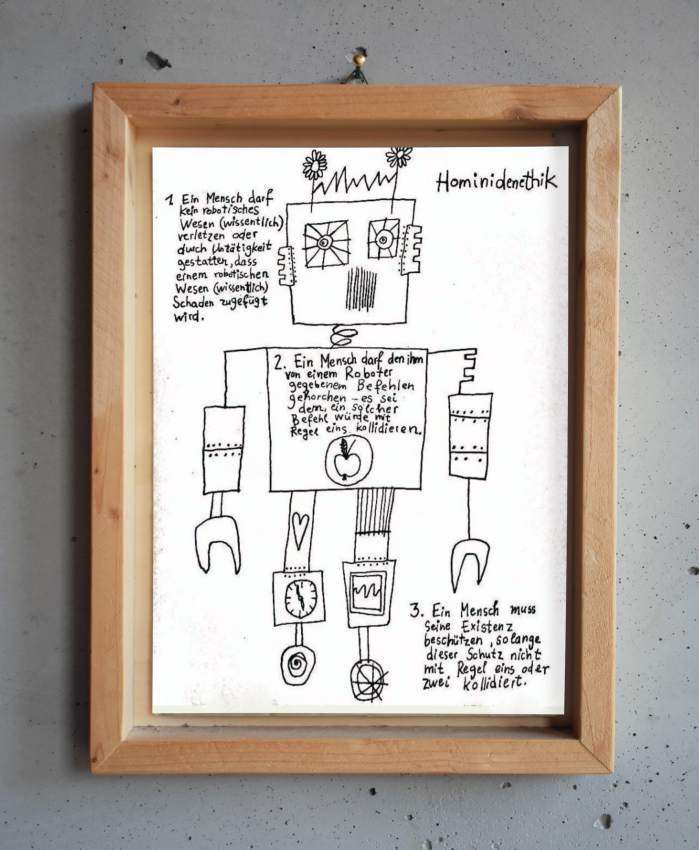 Hominidenethik
1 Ein Mensch darf
kein robotisches
Wesen (wissentlich)
verletzen oder
durch Untätigkeit
gestatten, dass
einem robotischen
Wesen (wissentlich)
Schaden zugefügt
wird.
2. Ein Mensch darf den ihm
von einem Roboter
gegebenem Befehlen
gehorchen - es sei
dem, ein solcher
Befehl würde mit
Regel eins kollidieren.
3. Ein Mensch muss
seine Existenz
beschützen, solange
dieser Schutz nicht
mit Regel eins oder
zwei kollidiert.